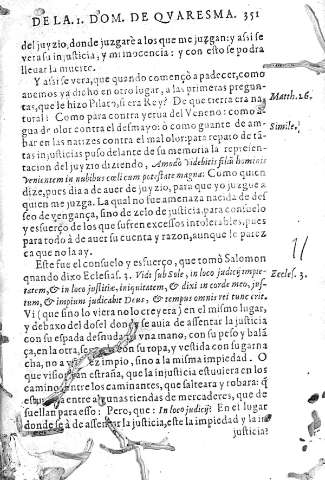 DE LA .1. DOM. DE QVARESMA. 351
del juyzio, donde juzgarè a los que me juzgan: y assi se
vera su injusticia, y mi inocencia: y con esto se podra
lleuar la muerte.
Y assi se vera, que quando començò a padecer, como
auemos ya dicho en otro lugar, a las primeras pregun-
tas, que le hizo Pilato, si era Rey? De que tierra era na-
tural: Como para contra yerua del Veneno: como a-
gua de olor contra el desmayo: ò como guante de am-
bar en las narizes contra el mal olor: para reparo de tã-
tas injusticias puso delante de su memoria la represen-
tacion del juyzio diziendo, Amodò Videbitis filiũ hominis
Venientem in nubibus cœli cum potestate magna: Como quien
dize, pues dia à de auer de juyzio, para que yo juzgue a
quien me juzga. La qual no fue amenaza nacida de des-
seo de vengança, sino de zelo de justicia, para consuelo
y esfuerço de los que sufren excessos intolerables, pues
para todo à de auer su cuenta y razon, aunque le parez
ca que no la ay.
Este fue el consuelo y esfuerço, que tomò Salomon
quando dixo Eclesias. 3. Vidi sub Sole, in loco iudicij impie-
tatem, & in loco iustitiæ, iniquitatem, & dixi in corde meo, ius-
tum, & impium iudicabit Deus, & tempus omnis rei tunc erit.
Vi (que sino lo viera no lo creyera) en el mismo lugar,
y debaxo del dosel donde se auia de assentar la justicia
con su espada desnuda en vna mano, con su peso y balã
ça, en la otra, con su ropa, y vestida con su garna
cha, no a vn impio, sino a la misma impiedad. O
que vision tan estraña, que la injusticia estuuiera en los
caminos, entre los caminantes, que salteara y robara: q̃
estuuiera entre algunas tiendas de mercaderes, que de
suellan para esso: Pero, que: In loco iudicij: En el lugar
donde se à de assentar la justicia, este la impiedad y la in
justicia:
Matth. 26.
Simile.
Eccles. 3.